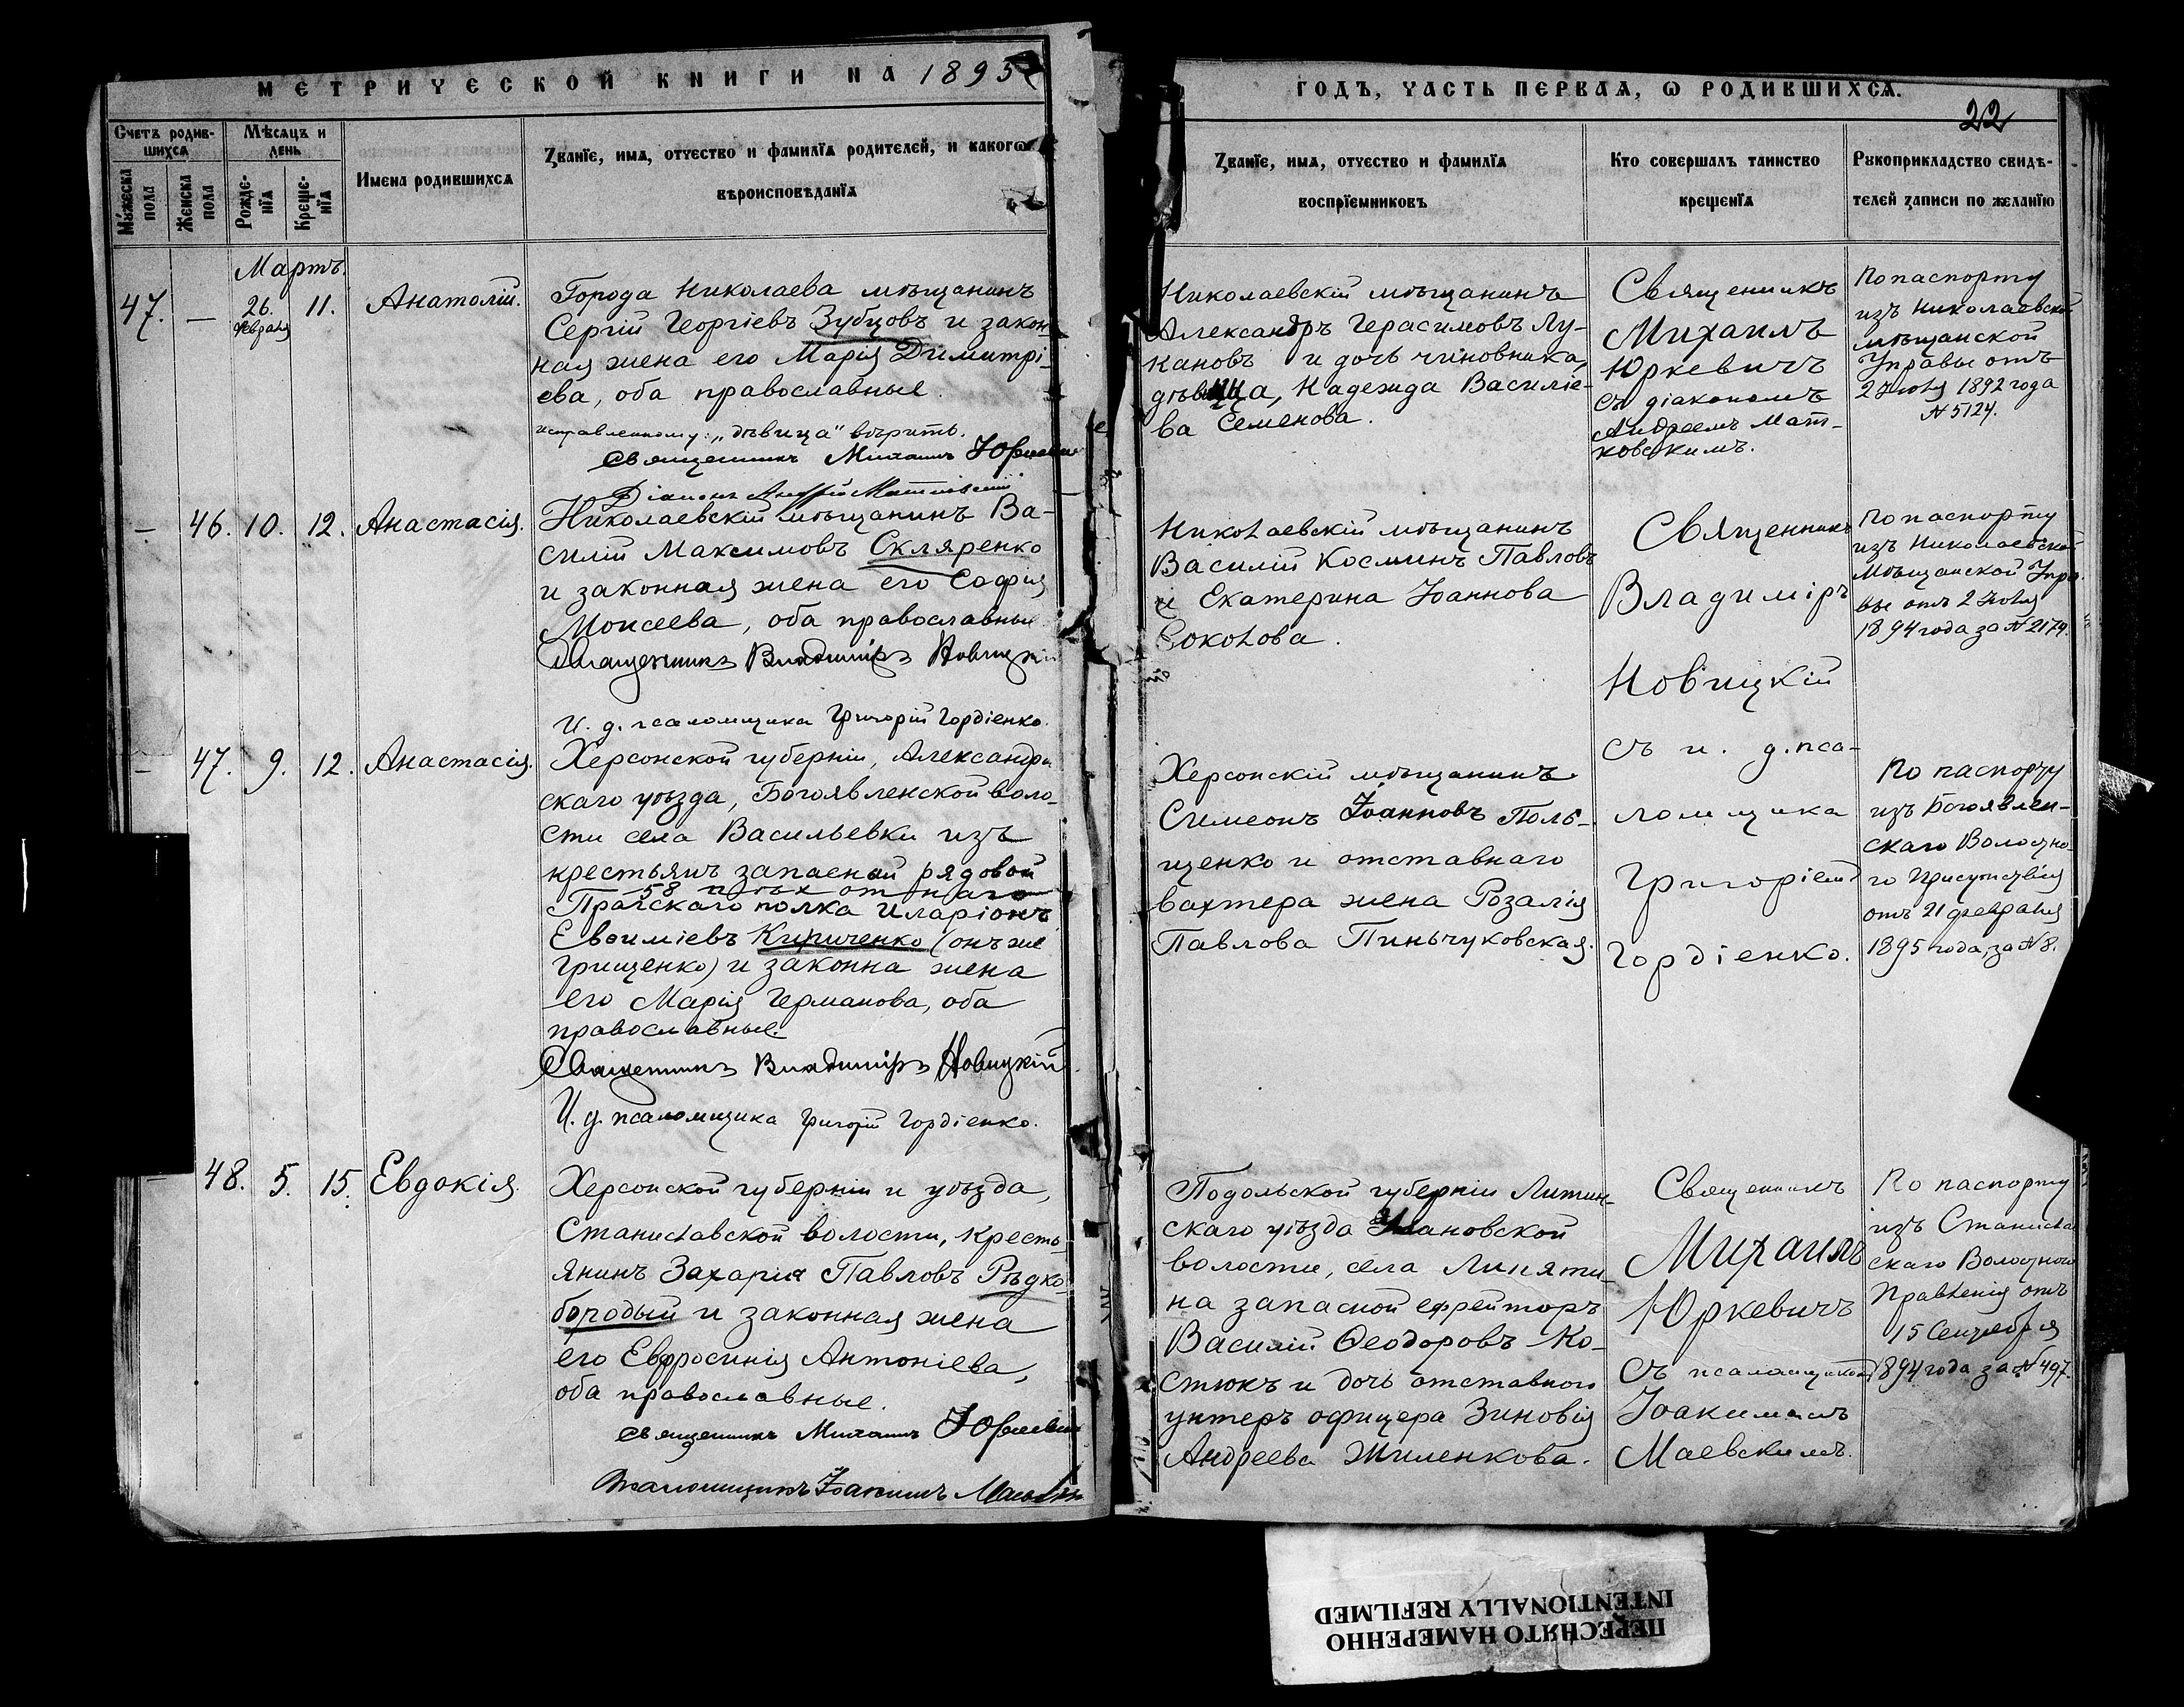 МЕТРИЧЕСКОЙ КНИГИ НА 1895
ГОДЪ, ЧАСТЬ ПЕРВАЯ, Ѡ РОДИВШИХСЯ.
22
Счетъ родив-
шихся
Мѣсяцъ и
день
Мужеска
пола
Женска
пола
Рожде-
нїя
Креще-
нїя
Имена родившихся
Званїе, имя, отчество и фамилїя родителей, и какогѡ
вѣроисповѣданїя
Званїе, имя, отчество и фамилїя
воспрїемниковъ
Кто совершалъ таинство
крещенїя
Рукоприкладство свидѣ-
телей записи по желанїю
Мартъ.
47. — 26. февраля 11. Анатолій.
Города Николаева мѣщанинъ
Сергій Георгіевъ Зубцовъ и закон-
ная жена его Марія Димитрі-
ева, оба православные.
исправленному: „дѣвица" вѣрить.
Священникъ Михаилъ Юркевичъ
Діаконъ Андрей Матковскій
Николаевскій мѣщанинъ
Александръ Герасимовъ Лу-
кановъ и дочь чиновника,
дѣвица, Надежда Василіе-
ва Семенова.
Священникъ
Михаилъ
Юркевичъ
съ діакономъ
Андреемъ Мат-
ковскимъ.
По паспорту
изъ Николаевской
мѣщанской
Управы отъ
2 Іюля 1892 года
№ 5124.
— 46. 10. 12. Анастасія.
Николаевскій мѣщанинъ Ва-
силій Максимовъ Скляренко
и законная жена его Софія
Моисеева, оба православные
Священникъ Владиміръ Новицкій
И. д. псаломщика Григорій Гордіенко.
Николаевскій мѣщанинъ
Василій Косминъ Павловъ
и Екатерина Іоаннова
Соколова.
Священникъ
Владиміръ
Новицкій
съ и. д. пса-
ломщика
Григоріемъ
Гордіенко.
По паспорту
изъ Николаевской
Мѣщанской Упра-
вы отъ 2 Іюля
1894 года за № 2174.
— 47. 9. 12. Анастасія.
Херсонской губерніи, Александрій
скаго уѣзда, Богоявленской воло-
сти села Васильевки изъ
крестьянъ запасный рядовой
58 пѣхотнаго
Прагскаго полка Иларіонъ
Евѳиміевъ Кириченко (онъ же
Грищенко) и законна жена
его Марія Германова, оба
православные.
Священникъ Владиміръ Новицкій
И. д. псаломщика Григорій Гордіенко.
Херсонскій мѣщанинъ
Симеонъ Іоанновъ Поль-
щенко и отставнаго
вахтера жена Розалія
Павлова Пиньчуковская.
По паспорту
изъ Богоявлен-
скаго Волостно-
го Присутствія
отъ 21 февраля
1895 года, за № 8.
48. 5. 15. Евдокія.
Херсонской губерніи и уѣзда,
Станиславской волости, кресть-
янинъ Захарія Павловъ Рѣдко-
бородый и законная жена
его Евфросинія Антоніева,
оба православные.
Священникъ Михаилъ Юркевичъ
Псаломщикъ Іоакимъ Маевскій
Подольской губерніи Литин-
скаго уѣзда Улановской
волости, села Липяти-
на запасной ефрейторъ
Василій Ѳеодоровъ Ко-
стюкъ и дочь отставного
унтеръ офицера Зиновія
Андреева Жиленкова.
Священникъ
Михаилъ
Юркевичъ
съ псаломщикомъ
Іоакимомъ
Маевскимъ.
По паспорту
изъ Станислав
скаго Волостного
Правленія отъ
15 Сентября
1894 года за № 497.
ПЕРЕСНЯТО НАМЕРЕННО
INTENTIONALLY REFILMED